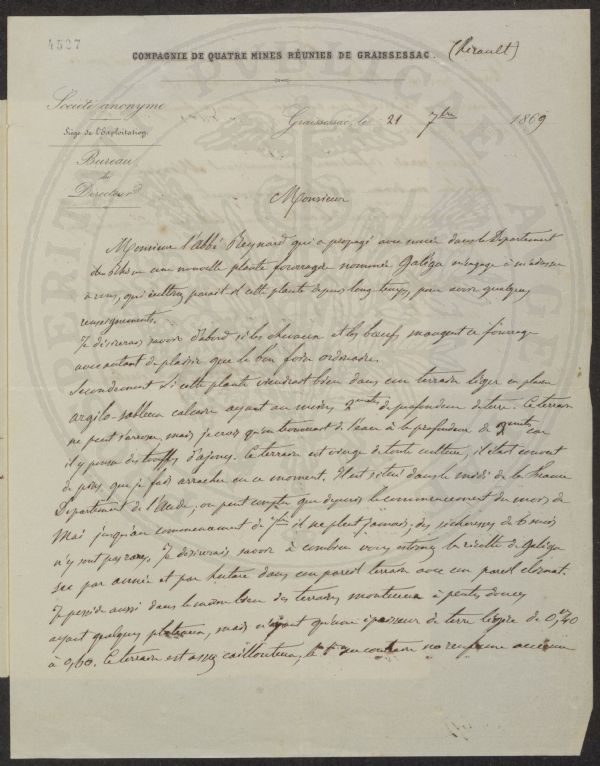 4527
COMPAGNIE DE QUATRE MINES RÉUNIES DE GRAISSESSAC. (Hérault)
Société anonyme
Siège de l'Exploitation
Bureau
du
Directeur
Graissessac, le 21 7bre 1869
Monsieur
Monsieur l'abbé Reynard qui a propagé avec succès dans le Département
du Rhône une nouvelle plante fourragère nommée Galéga m'engage à m'adresser
à vous, qui cultivez paraît il cette plante depuis long temps, pour avoir quelques
renseignements.
Je désirerais savoir d'abord si les chevaux et les bœufs mangent ce fourrage
avec autant de plaisir que le bon foin ordinaire.
Secondement si cette plante viendrait bien dans un terrain léger en plaine
argilo-sableux calcaire ayant au moins 2 mètres de profondeur de terre. Ce terrain
ne peut s'arroser, mais je crois qu'on trouverait de l'eau à la profondeur de 2 mètres car
il y pousse des touffes d'ajoncs. Ce terrain est vierge de toute culture, il était couvert
de pins, que je fais arracher en ce moment. Il est situé dans le midi de la France
Département de l'Aude, on peut compter que depuis le commencement du mois de
Mai jusqu'au commencement de 7bre il ne pleut jamais, des sécheresses de 6 mois
n'y sont pas rares. Je désirerais savoir à combien vous estimez la récolte de Galéga
sec par année et par hectare dans un pareil terrain avec un pareil climat.
Je possède aussi dans le même bien des terrains montueux à pentes douces
ayant quelques plateaux, mais n'ayant qu'une épaisseur de terre légère de 0,m40
à 0,60. Ce terrain est assez caillouteux, le au contraire ne renferme aucune